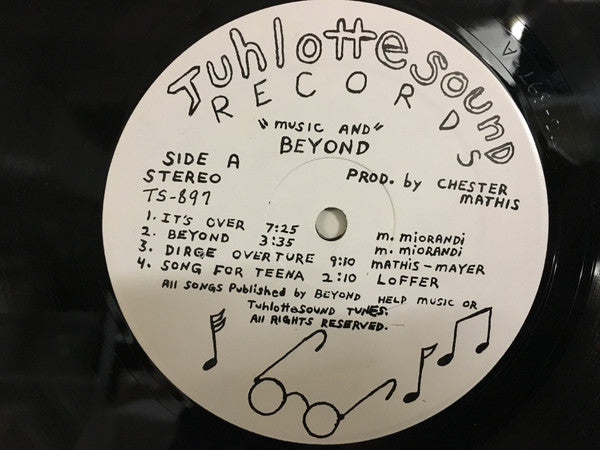 TuhlotteSound
RECORDS
"MUSIC AND"
BEYOND
SIDE A
STEREO
TS-897
PROD. by CHESTER
MATHIS
1. IT'S OVER 7:25 M. MIORANDI
2. BEYOND 3:35 M. MIORANDI
3. DIRGE OVERTURE 9:10 MATHIS-MAYER
4. SONG FOR TEENA 2:10 LOFFER
All SONGS Published by BEYOND HELP MUSIC OR
TuhlotteSOUND TUNES.
All RIGHTS RESERVED.